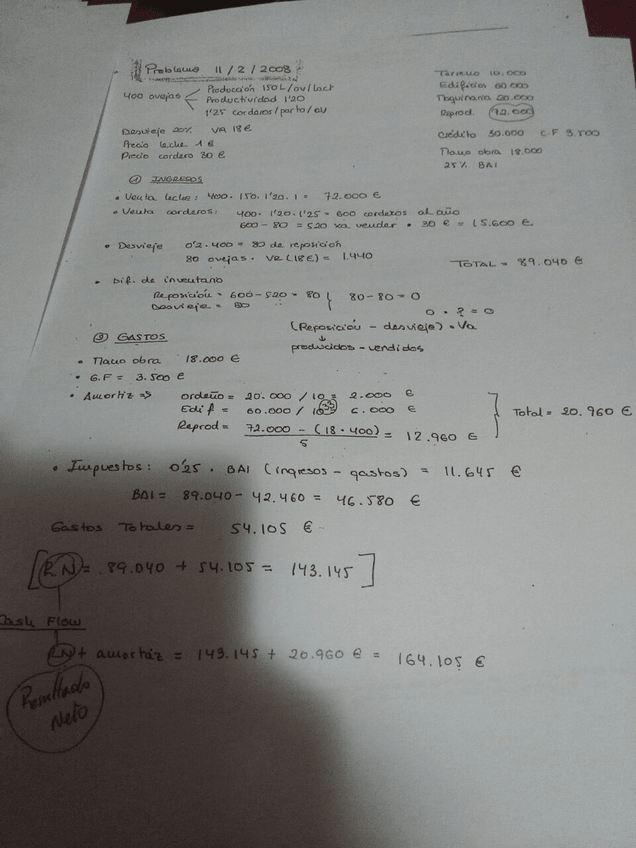 Problema 11/2/2008
400 ovejas
Producción 150L/ov/lact
Productividad 1'20
1'25 corderos/parto/ov
Desvieje 20% VA 18€
Precio leche 1 €
Precio cordero 30 €
Terreno 10.000
Edificios 60.000
Maquinaria 20.000
Reprod. 72.000
Crédito 30.000 G.F 3.500
Mano obra 18.000
25% BAI
① INGRESOS
• Venta leche: 400 · 150 · 1'20 · 1 = 72.000 €
• Venta corderos: 400 · 1'20 · 1'25 = 600 corderos al año
600 - 80 = 520 va vender * 30 € = 15.600 €
• Desvieje 0'2 · 400 = 80 de reposición
80 ovejas · VR (18€) = 1.440
TOTAL = 89.040 €
• Dif. de inventario
Reposición = 600 - 520 = 80
Desvieje = 80
80 - 80 = 0
0 · ? = 0
(Reposición - desvieje) * Va
producidos - vendidos
② GASTOS
• Mano obra 18.000 €
• G.F = 3.500 €
• Amortiz => ordeño = 20.000 / 10 = 2.000 €
Edif = 60.000 / 10 = 6.000 €
Reprod = 72.000 - (18 · 400) / 5 = 12.960 €
Total = 20.960 €
• Impuestos: 0'25 · BAI (ingresos - gastos) = 11.645 €
BAI = 89.040 - 42.460 = 46.580 €
Gastos Totales = 54.105 €
[RN = 89.040 + 54.105 = 143.145]
Cash Flow
RN + amortiz = 143.145 + 20.960 € = 164.105 €
Resultado
Neto